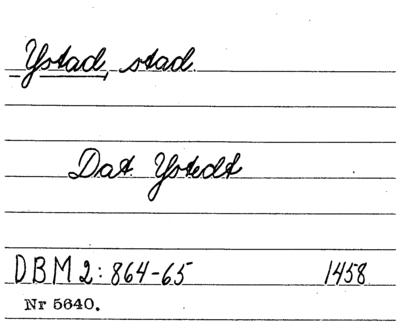 Ystad, stad.
Dat. Ystedt
DBM 2: 864-65 1458
Nr 5640.